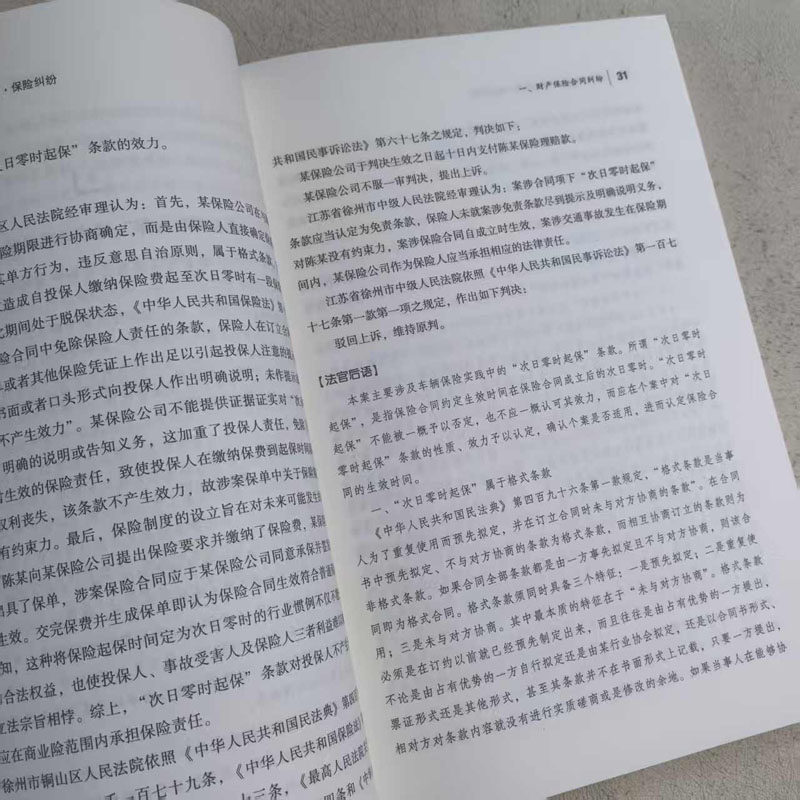 ·保险纠纷
次日零时起保”条款的效力。
区人民法院经审理认为：首先，某保险公司在
险期限进行协商确定，而是由保险人直接确定
其单方行为，违反意思自治原则，属于格式条款，
造成自投保人缴纳保险费起至次日零时有一段
此期间处于脱保状态，《中华人民共和国保险法》第
险合同中免除保险人责任的条款，保险人在订立合
或者其他保险凭证上作出足以引起投保人注意的
书面或者口头形式向投保人作出明确说明；未作
不产生效力”。某保险公司不能提供证据证实对“
明确的说明或告知义务，这加重了投保人责任，免
生效的保险责任，致使投保人在缴纳保费到起保时间
权利丧失，该条款不产生效力，故涉案保单中关于保险
有约束力。最后，保险制度的设立旨在对未来可能发生
陈某向某保险公司提出保险要求并缴纳了保险费，某
出具了保单，涉案保险合同应于某保险公司同意承保并
生效。交完保费并生成保单即认为保险合同生效符合普通
知，这种将保险起保时间定为次日零时的行业惯例不仅不
的合法权益，也使投保人、事故受害人及保险人三者利益
立法宗旨相悖。综上，“次日零时起保”条款对投保人不
应在商业险范围内承担保险责任。
徐州市铜山区人民法院依照《中华人民共和国民法典》第四
千一百七十九条，《中华人民共和国保险法》
七十三条，《最高人民
四条和《中
一、财产保险合同纠纷 31
共和国民事诉讼法》第六十七条之规定，判决如下：
某保险公司于判决生效之日起十日内支付陈某保险理赔款。
某保险公司不服一审判决，提出上诉。
江苏省徐州市中级人民法院经审理认为：案涉合同项下“次日零时起保”
条款应当认定为免责条款，保险人未就案涉免责条款尽到提示及明确说明义务，
对陈某没有约束力，案涉保险合同自成立时生效，案涉交通事故发生在保险期
间内，某保险公司作为保险人应当承担相应的法律责任。
江苏省徐州市中级人民法院依照《中华人民共和国民事诉讼法》第一百七
十七条第一款第一项之规定，作出如下判决：
驳回上诉，维持原判。
【法官后语】
本案主要涉及车辆保险实践中的“次日零时起保”条款。所谓“次日零时
起保”，是指保险合同约定生效时间在保险合同成立后的次日零时。“次日零时
起保”不能被一概予以否定，也不应一概认可其效力，而应在个案中对“次日
零时起保”条款的性质、效力予以认定，确认个案是否适用，进而认定保险合
同的生效时间。
一、“次日零时起保”属于格式条款
《中华人民共和国民法典》第四百九十六条第一款规定，“格式条款是当事
人为了重复使用而预先拟定，并在订立合同时未与对方协商的条款”。在合同
书中预先拟定、不与对方协商的条款为格式条款，而相互协商订立的条款则为
非格式条款。如果合同全部条款都是由一方事先拟定且不与对方协商，则该合
同即为格式合同。格式条款须同时具备三个特征：一是预先拟定；二是重复使
用；三是未与对方协商。其中最本质的特征在于“未与对方协商”。格式条款
必须是在订约以前就已经预先制定出来，而且往往是由占有优势的一方提出，
不论是由占有优势的一方自行拟定还是由某行业协会拟定，还是以合同书形式、
票证形式还是其他形式，甚至其条款并不在书面形式上记载，只要一方提出，
相对方对条款内容就没有进行实质磋商或是修改的余地。如果当事人在能够协